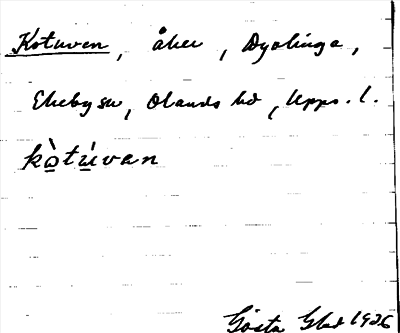 Kotuven, åker, Dyalinga,
Ekeby sn, Olands hd, Upps. l.
kòtúvan
Gösta 1926